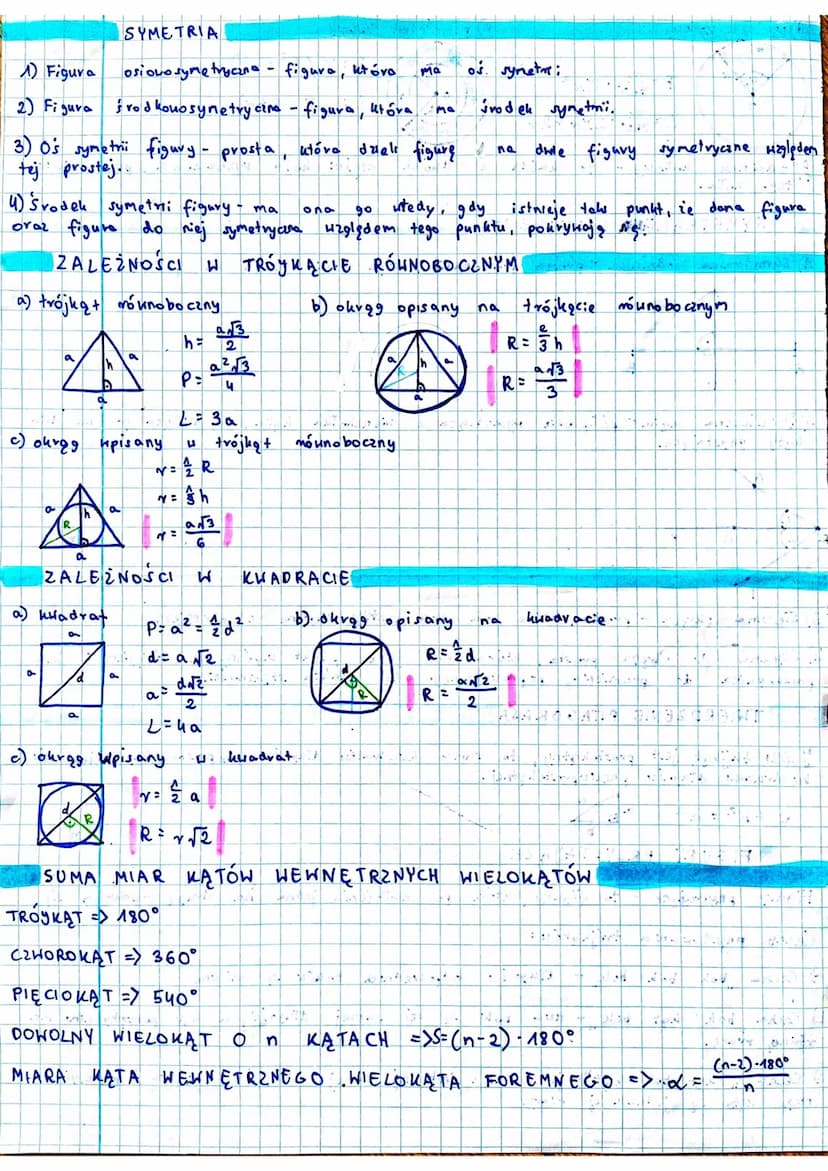 SYMETRIA
1) Figura osiowosymetryczna - figura, która ma oś symetrii
2) Figura środkowosymetryczna - figura, która ma środek symetrii.
3) Oś symetrii figury - prosta, która dzieli figurę na dwie figury symetryczne względem
tej prostej.
4) Środek symetrii figury - ma ona go wtedy, gdy istnieje taki punkt, że dana figura
oraz figura do niej symetryczna względem tego punktu, pokrywają się.
ZALEŻNOŚCI W TRÓJKĄCIE RÓWNOBOCZNYM
a) trójkąt równoboczny
b) okrąg opisany na trójkącie równobocznym
a
a
h
a
h = a√3/2
P = a²√3/4
L = 3a
a
a
h
R
a
R = 2/3 h
R = a√3/3
c) okrąg wpisany w trójkąt równoboczny
r = 1/2 R
r = 1/3 h
r = a√3/6
a
a
h
R
a
ZALEŻNOŚCI W KWADRACIE
a) kwadrat
b) okrąg opisany na kwadracie
a
a
d
a
a
P = a² = 1/2 d²
d = a√2
a = d√2/2
L = 4a
d
R
R = 1/2 d
R = a√2/2
c) okrąg wpisany w kwadrat
d
R
r = 1/2 a
R = r√2
SUMA MIAR KĄTÓW WEWNĘTRZNYCH WIELOKĄTÓW
TRÓJKĄT => 180°
CZWOROKĄT => 360°
PIĘCIOKĄT => 540°
DOWOLNY WIELOKĄT O n KĄTACH => S = (n-2) · 180°
MIARA KĄTA WEWNĘTRZNEGO WIELOKĄTA FOREMNEGO => α = (n-2)·180°/n